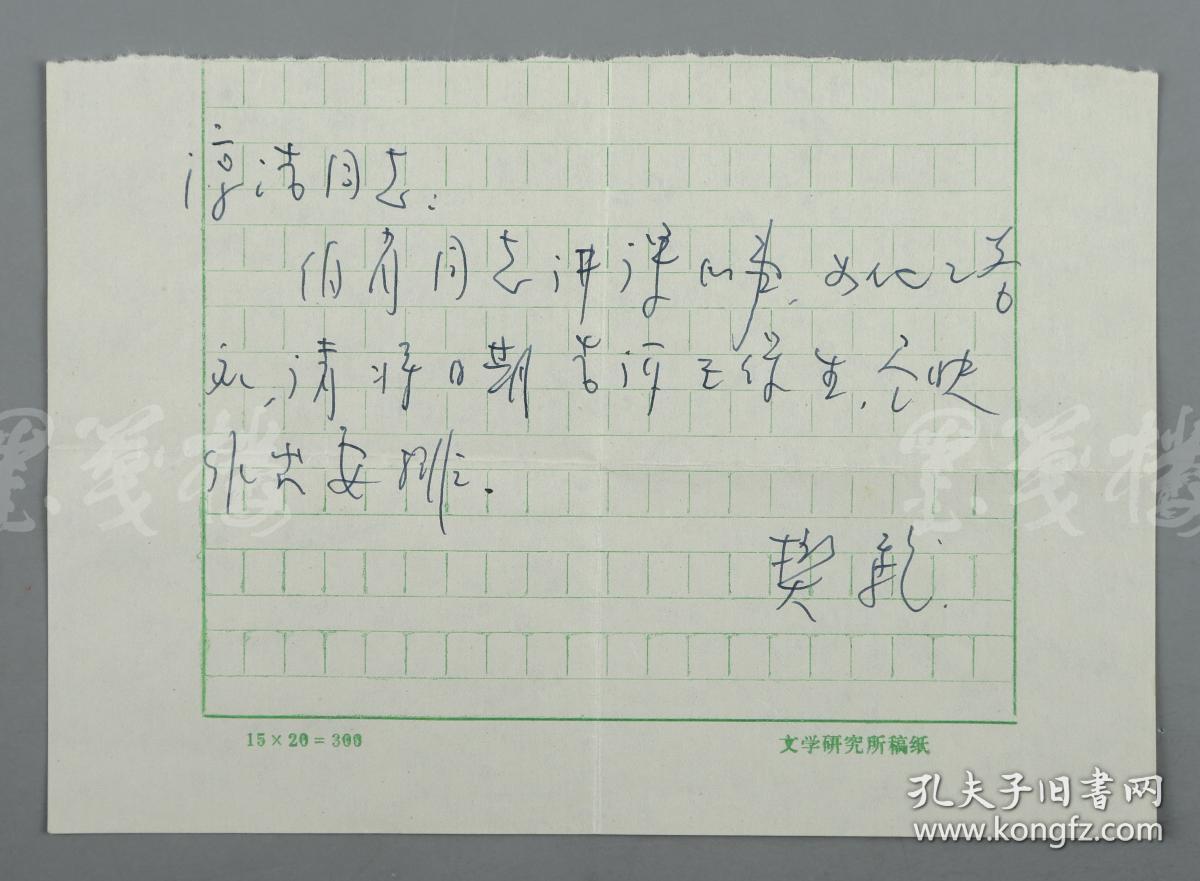 淳浩同志:
同志讲课的事,如他已答
应,请将日期告诉王保生,尽快
作出安排.
樊骏.
墨笺楼
墨笺楼
15×20=300
文学研究所稿纸
孔夫子旧书网
www.kongfz.com